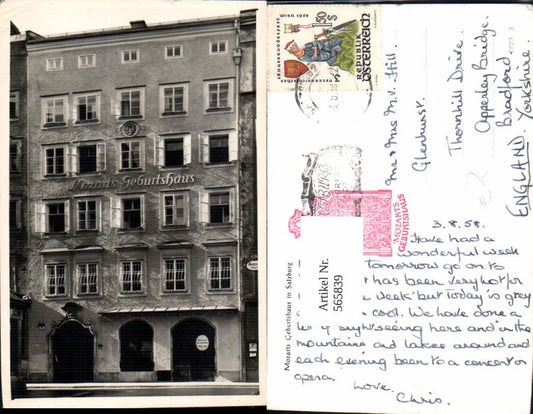 Mozarts Geburtshaus
SÄNGERBUNDESFEST
WIEN 1958
1.50 S
REPUBLIK
ÖSTERREICH
Mr & Mrs M.V. Hill.
Glenhurst.
Thornhill Drive
Apperley Bridge.
Bradford
Yorkshire.
ENGLAND.
MOZARTS
GEBURTSHAUS
Mozarts Geburtshaus in Salzburg
Artikel Nr.
565839
3.8.58.
Have had a
wonderful week
tomorrow go on to
has been very hot for
week but today is grey
cool. We have done a
sightseeing here and in the
mountains and lakes around and
each evening been to a concert or
opera.
Love
Chris.